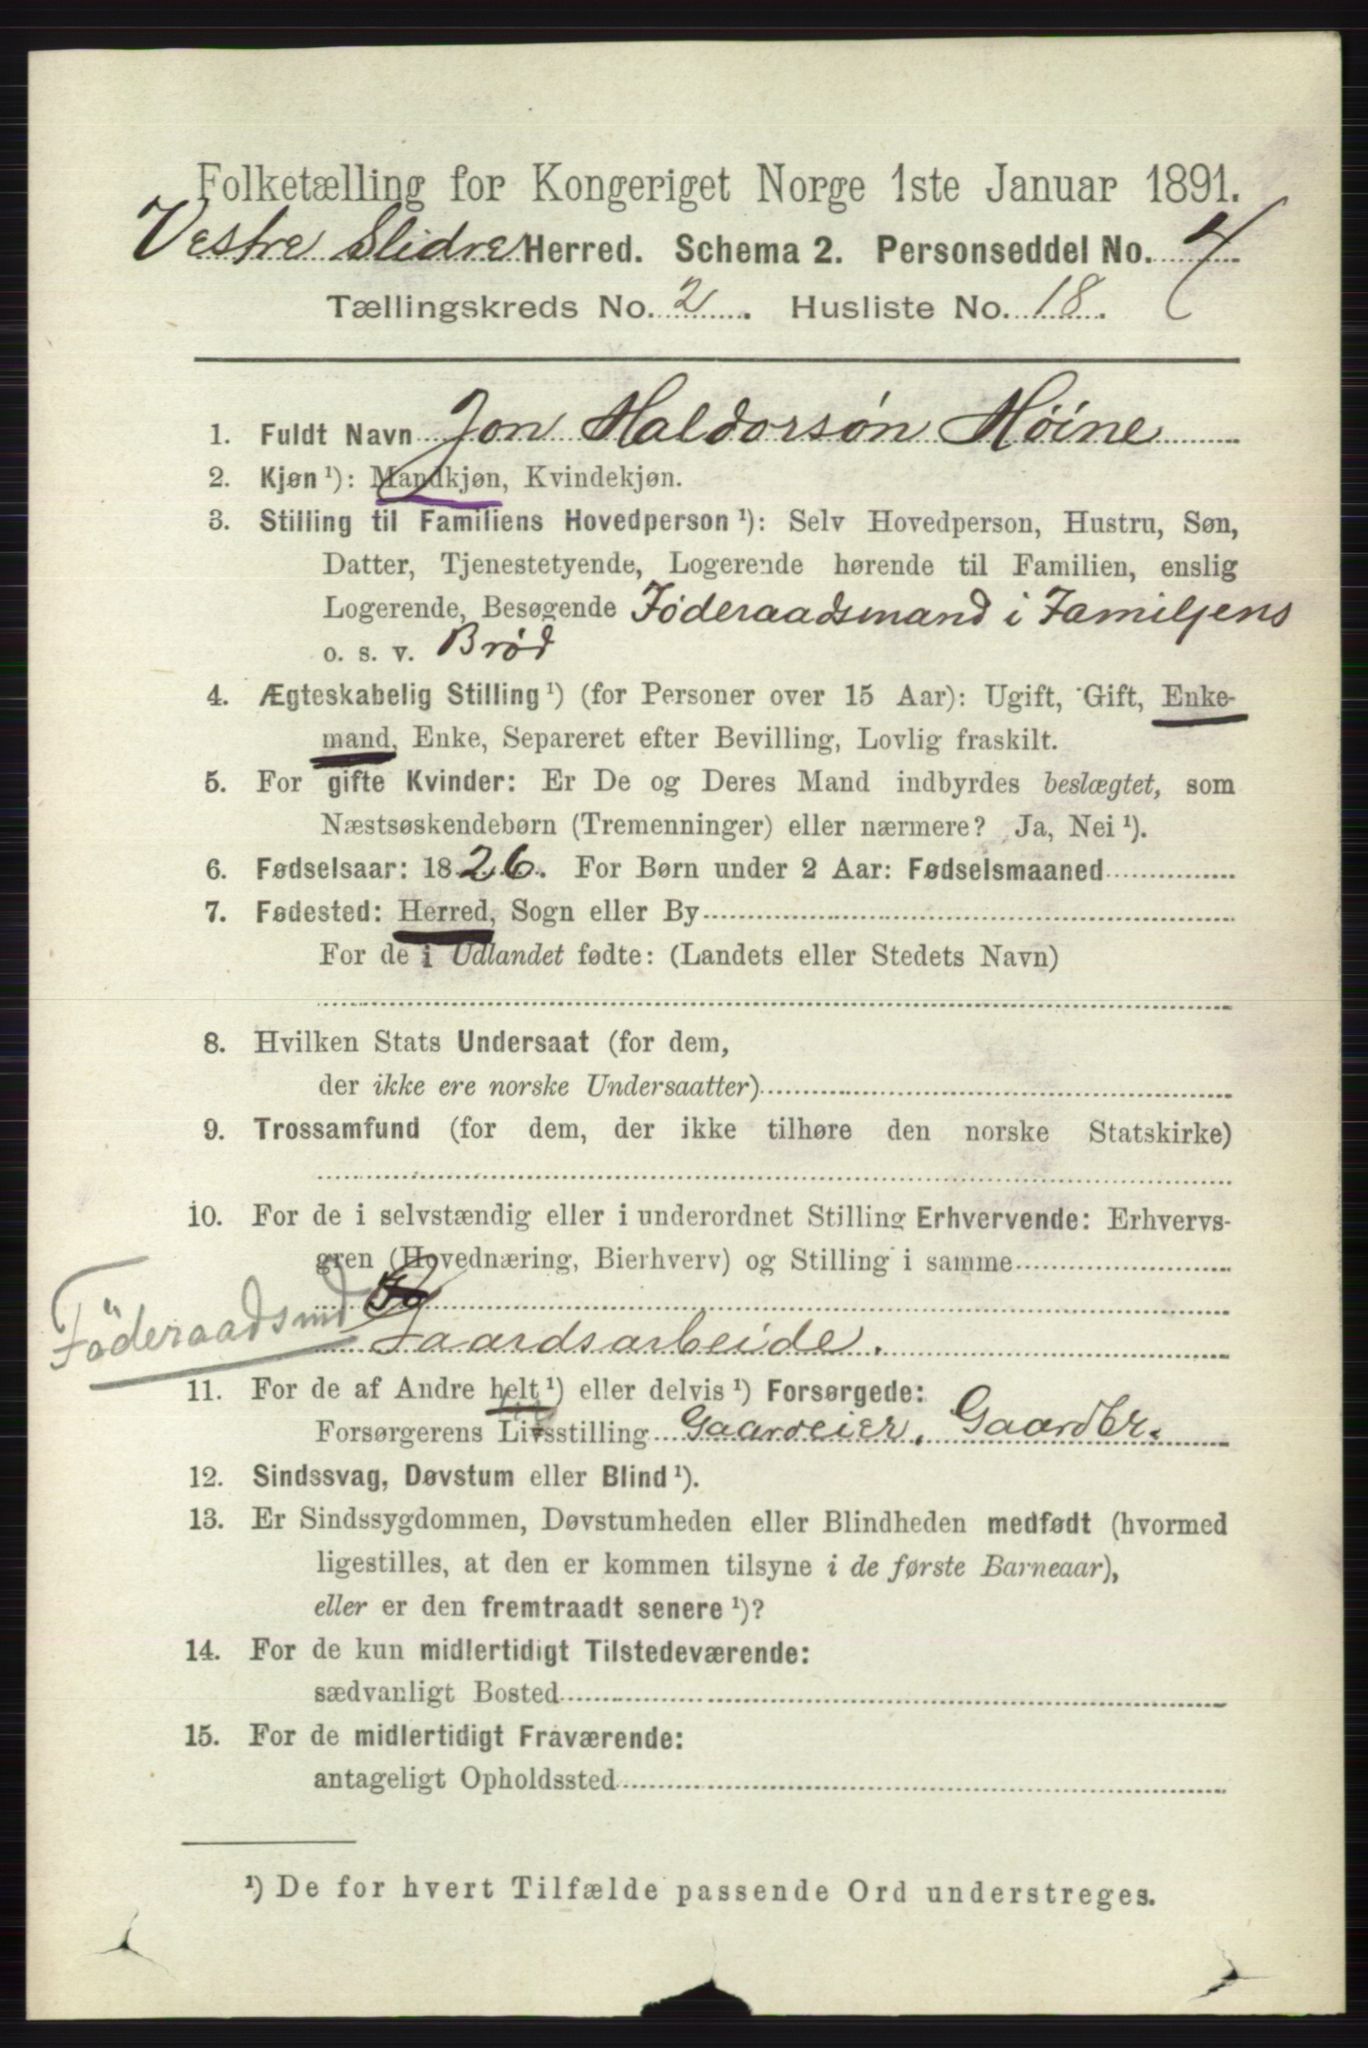 Folketælling for Kongeriget Norge 1ste Januar 1891.
Vestre Slidre Herred. Schema 2. Personseddel No. 7
Tællingskreds No. 2. Husliste No. 18.
1. Fuldt Navn Jon Haldorsøn Høine
2. Kjøn ¹): Mandkjøn, Kvindekjøn.
3. Stilling til Familiens Hovedperson ¹): Selv Hovedperson, Hustru, Søn,
Datter, Tjenestetyende, Logerende hørende til Familien, enslig
Logerende, Besøgende Föderaadsmand i Familjens
o. s. v. Brød
4. Ægteskabelig Stilling ¹) (for Personer over 15 Aar): Ugift, Gift, Enke-
mand, Enke, Separeret efter Bevilling, Lovlig fraskilt.
5. For gifte Kvinder: Er De og Deres Mand indbyrdes beslægtet, som
Næstsøskendebørn (Tremenninger) eller nærmere? Ja, Nei ¹).
6. Fødselsaar: 1826. For Børn under 2 Aar: Fødselsmaaned
7. Fødested: Herred, Sogn eller By
For de i Udlandet fødte: (Landets eller Stedets Navn)
8. Hvilken Stats Undersaat (for dem,
der ikke ere norske Undersaatter)
9. Trossamfund (for dem, der ikke tilhøre den norske Statskirke)
10. For de i selvstændig eller i underordnet Stilling Erhvervende: Erhvervs-
gren (Hovednæring, Bierhverv) og Stilling i samme
Föderaadsmd Gaardsarbeide.
11. For de af Andre helt ¹) eller delvis ¹) Forsørgede:
Forsørgerens Livsstilling Gaardeier. Gaardbr.
12. Sindssvag, Døvstum eller Blind ¹).
13. Er Sindssygdommen, Døvstumheden eller Blindheden medfødt (hvormed
ligestilles, at den er kommen tilsyne i de første Barneaar),
eller er den fremtraadt senere ¹)?
14. For de kun midlertidigt Tilstedeværende:
sædvanligt Bosted
15. For de midlertidigt Fraværende:
antageligt Opholdssted
¹) De for hvert Tilfælde passende Ord understreges.